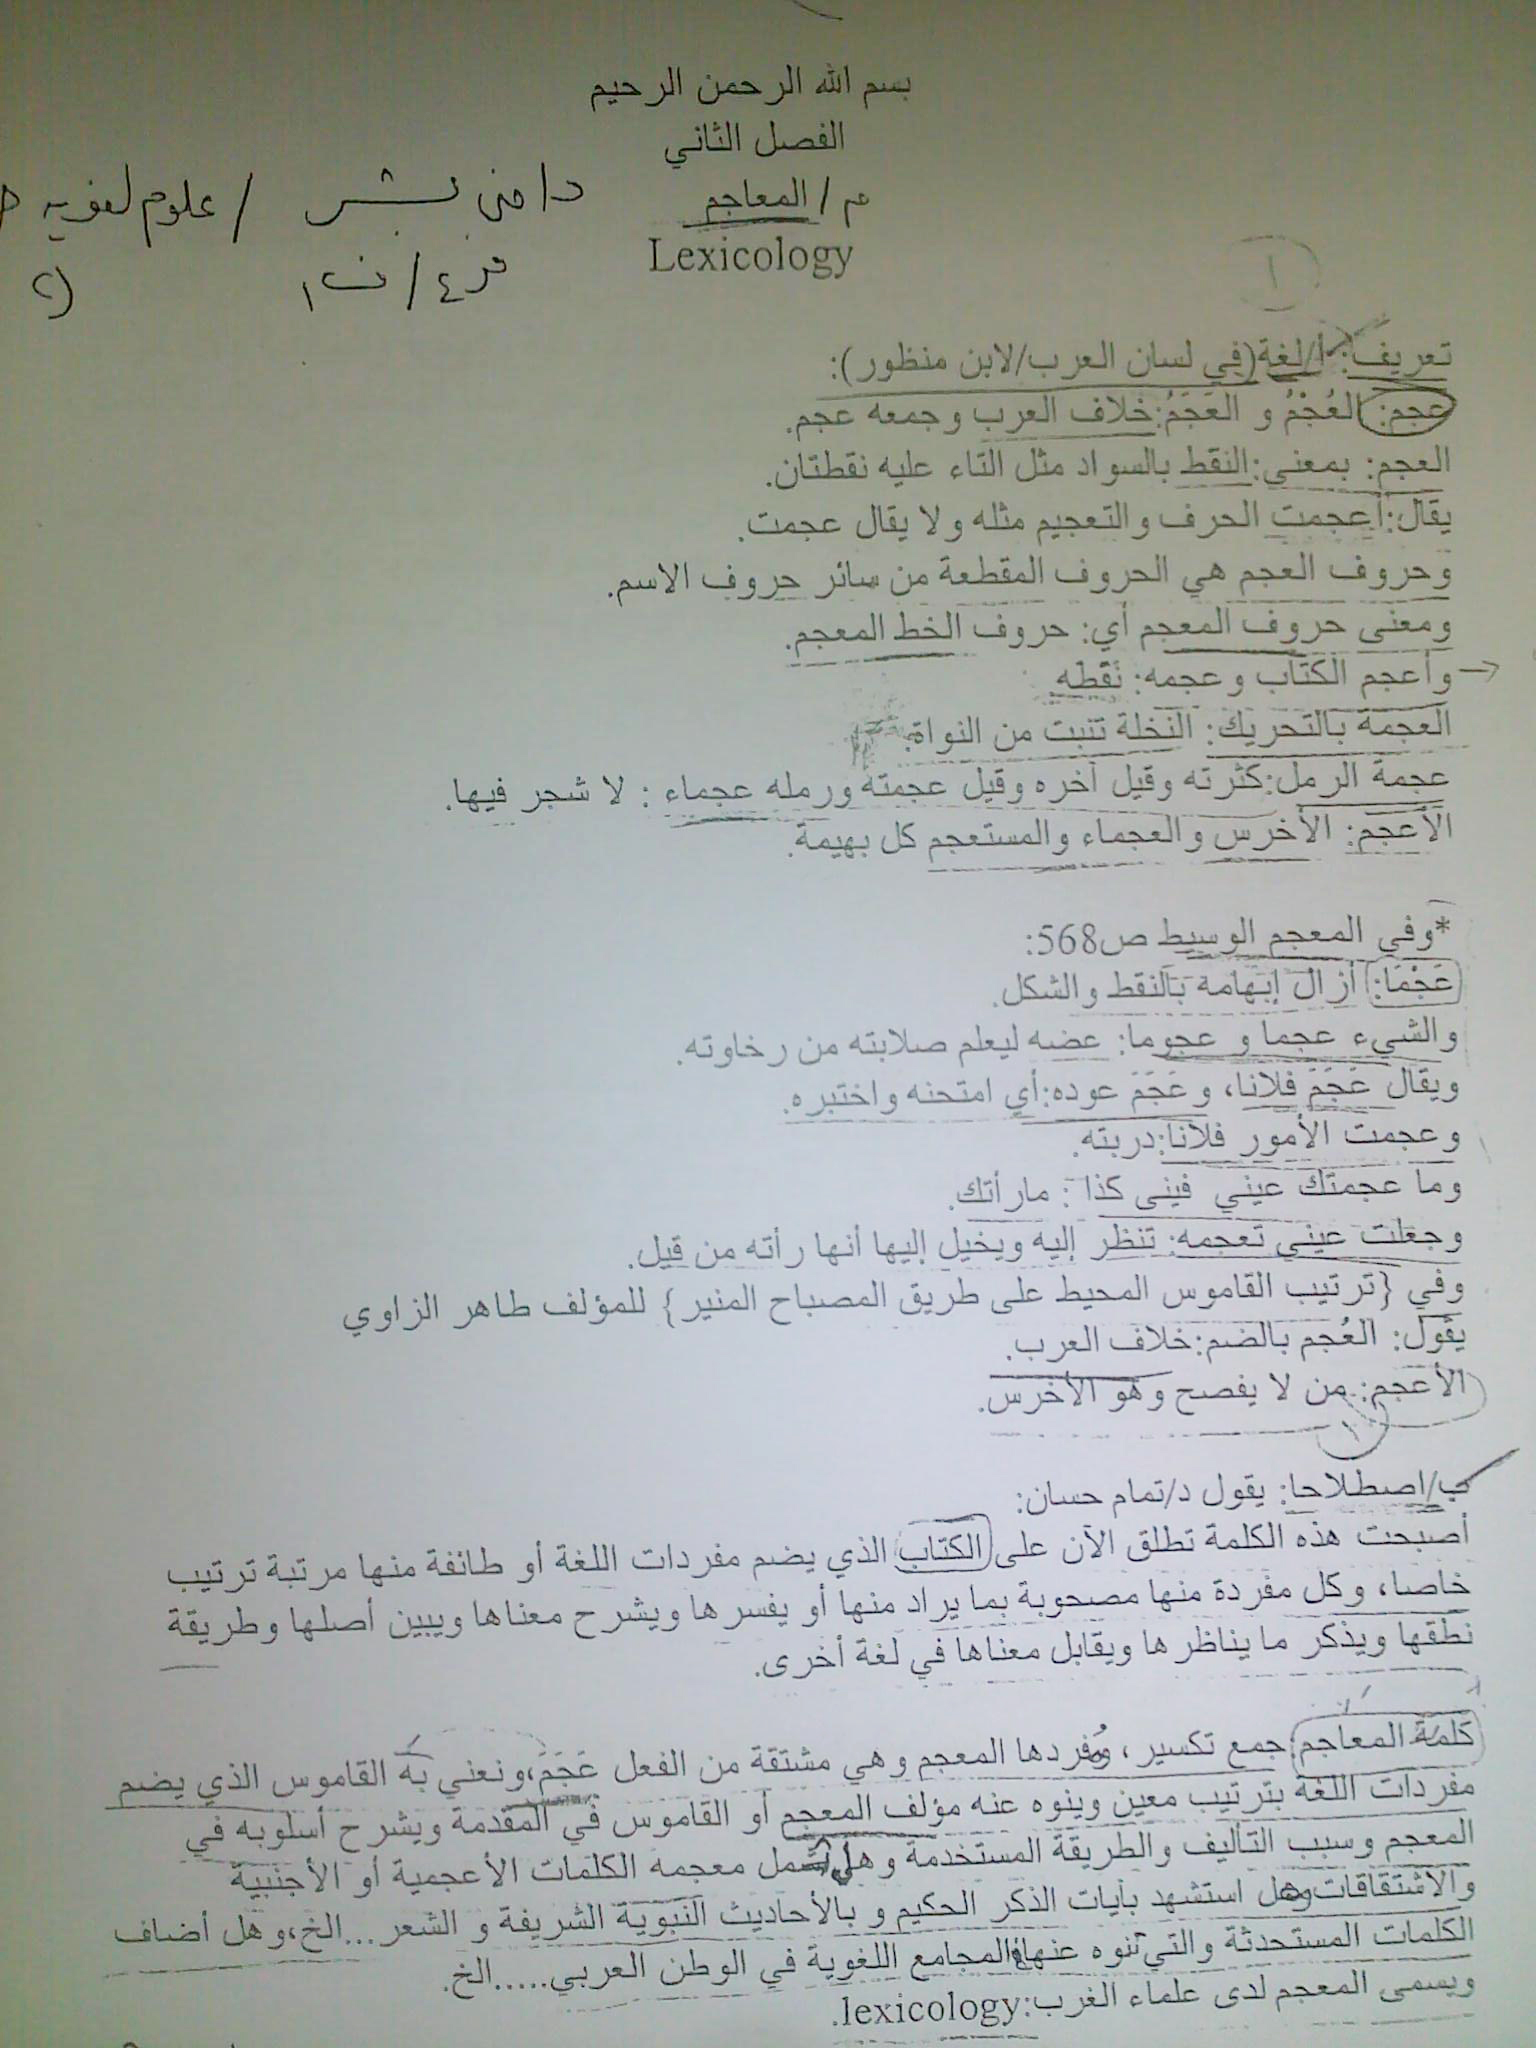 بسم الله الرحمن الرحيم
الفصل الثاني
م/ المعاجم
د/ منى بشر / علوم لغوية
Lexicology
م٤ / ف١
١
تعريف: أ/لغة(في لسان العرب/لابن منظور):
عجم: العُجْمُ و العَجَمُ:خلاف العرب وجمعه عجم.
العجم: بمعنى:النقط بالسواد مثل التاء عليه نقطتان.
يقال:أعجمت الحرف والتعجيم مثله ولا يقال عجمت.
وحروف العجم هي الحروف المقطعة من سائر حروف الاسم.
ومعنى حروف المعجم أي: حروف الخط المعجم.
وأعجم الكتاب وعجمه: نَقَطَه
العجمة بالتحريك: النخلة تنبت من النواة.
عجمة الرمل:كثرته وقيل أخره وقيل عجمته ورمله عجماء : لا شجر فيها.
الأعجم: الأخرس والعجماء والمستعجم كل بهيمة.
*وفي المعجم الوسيط ص568:
عَجْمَا: أزال إبهامه بالنقط والشكل.
والشيء عجما و عجوما: عضه ليعلم صلابته من رخاوته.
ويقال عَجَمَ فلانا، وعَجَمَ عوده:أي امتحنه واختبره.
وعجمت الأمور فلانا:دربته.
وما عجمتك عيني فيني كذا : مارأتك.
وجعلت عيني تعجمه: تنظر إليه ويخيل إليها أنها رأته من قيل.
وفي {ترتيب القاموس المحيط على طريق المصباح المنير} للمؤلف طاهر الزاوي
يقول: العُجم بالضم:خلاف العرب.
الأعجم: من لا يفصح وهو الأخرس.
١
ب/اصطلاحا: يقول د/تمام حسان:
أصبحت هذه الكلمة تطلق الآن على الكتاب الذي يضم مفردات اللغة أو طائفة منها مرتبة ترتيب
خاصا، وكل مفردة منها مصحوبة بما يراد منها أو يفسرها ويشرح معناها ويبين أصلها وطريقة
نطقها ويذكر ما يناظرها ويقابل معناها في لغة أخرى.
كلمة المعاجم:جمع تكسير، ومُفردها المعجم وهي مشتقة من الفعل عَجَمَ،ونعني به القاموس الذي يضم
مفردات اللغة بترتيب معين وينوه عنه مؤلف المعجم أو القاموس في المقدمة ويشرح أسلوبه في
المعجم وسبب التأليف والطريقة المستخدمة وهل يشمل معجمه الكلمات الأعجمية أو الأجنبية
والاشتقاقات وهل استشهد بأيات الذكر الحكيم و بالأحاديث النبوية الشريفة و الشعر...الخ،وهل أضاف
الكلمات المستحدثة والتي تنوه عنها المجامع اللغوية في الوطن العربي.....الخ.
ويسمى المعجم لدى علماء الغرب:lexicology.